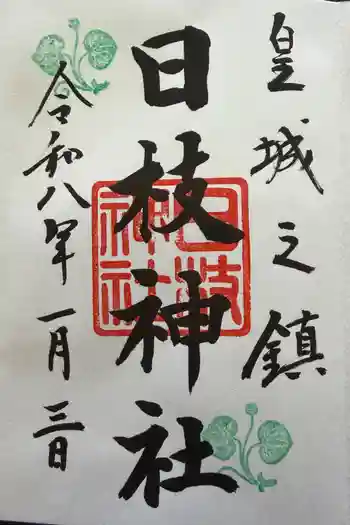 皇城之鎮
日枝神社
日枝神社
令和八年一月三日